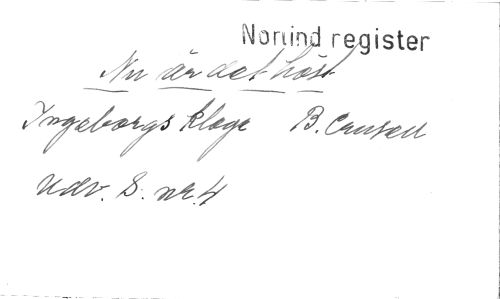 Nortind register
Nu är det höst
Ingeborgs klage B. Crusell
Udv. S. nr. 4